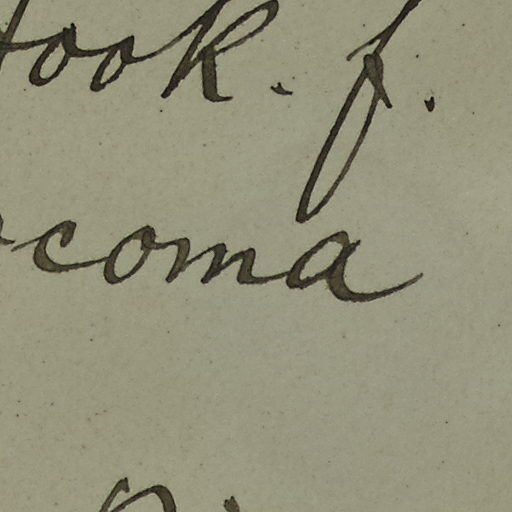 Hook. f.
coma